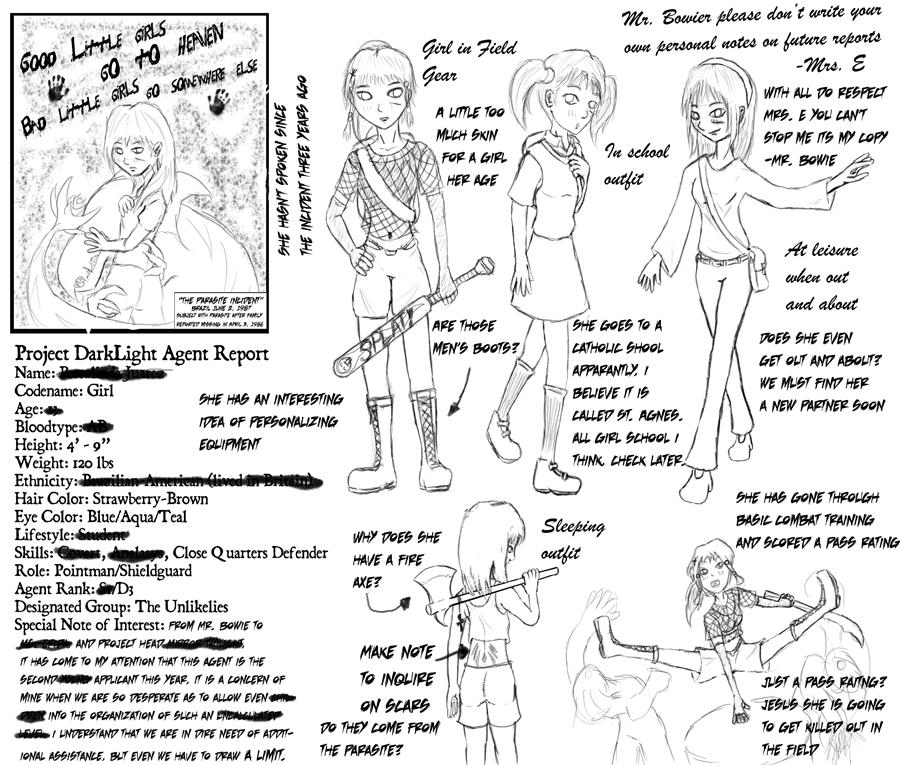 Good Little girls
go to Heaven
Bad little girls go somewhere else
"THE PARASITE INCIDENT"
BRAZIL JUNE 2, 1987
SUBJECT WITH PARASITE AFTER FAMILY
REPORTED MISSING IN APRIL 3, 1986
SHE HASN'T SPOKEN SINCE
THE INCIDENT THREE YEARS AGO
Girl in Field
Gear
A LITTLE TOO
MUCH SKIN
FOR A GIRL
HER AGE
In school
outfit
Mr. Bowier please don't write your
own personal notes on future reports
-Mrs. E
WITH ALL DO RESPECT
MRS. E YOU CAN'T
STOP ME ITS MY COPY
-MR. BOWIE
At leisure
when out
and about
DOES SHE EVEN
GET OUT AND ABOUT?
WE MUST FIND HER
A NEW PARTNER SOON
SPLAT!
ARE THOSE
MEN'S BOOTS?
SHE GOES TO A
CATHOLIC SHOOL
APPARANTLY. I
BELIEVE IT IS
CALLED ST. AGNES.
ALL GIRL SCHOOL I
THINK. CHECK LATER.
Project DarkLight Agent Report
Name:
Codename: Girl
Age:
Bloodtype: AB
Height: 4' - 9"
Weight: 120 lbs
Ethnicity: Brazilian-American (lived in Britain)
Hair Color: Strawberry-Brown
Eye Color: Blue/Aqua/Teal
Lifestyle: Student
Skills: , , Close Quarters Defender
Role: Pointman/Shieldguard
Agent Rank: /D3
Designated Group: The Unlikelies
Special Note of Interest: FROM MR. BOWIE TO
AND PROJECT HEAD
IT HAS COME TO MY ATTENTION THAT THIS AGENT IS THE
SECOND APPLICANT THIS YEAR, IT IS A CONCERN OF
MINE WHEN WE ARE SO DESPERATE AS TO ALLOW EVEN
INTO THE ORGANIZATION OF SUCH AN
I UNDERSTAND THAT WE ARE IN DIRE NEED OF ADDIT-
IONAL ASSISTANCE, BUT EVEN WE HAVE TO DRAW A LIMIT.
SHE HAS AN INTERESTING
IDEA OF PERSONALIZING
EQUIPMENT
WHY DOES SHE
HAVE A FIRE
AXE?
Sleeping
outfit
MAKE NOTE
TO INQUIRE
ON SCARS
DO THEY COME FROM
THE PARASITE?
SHE HAS GONE THROUGH
BASIC COMBAT TRAINING
AND SCORED A PASS RATING
JUST A PASS RAITNG?
JESUS SHE IS GOING
TO GET KILLED OUT IN
THE FIELD